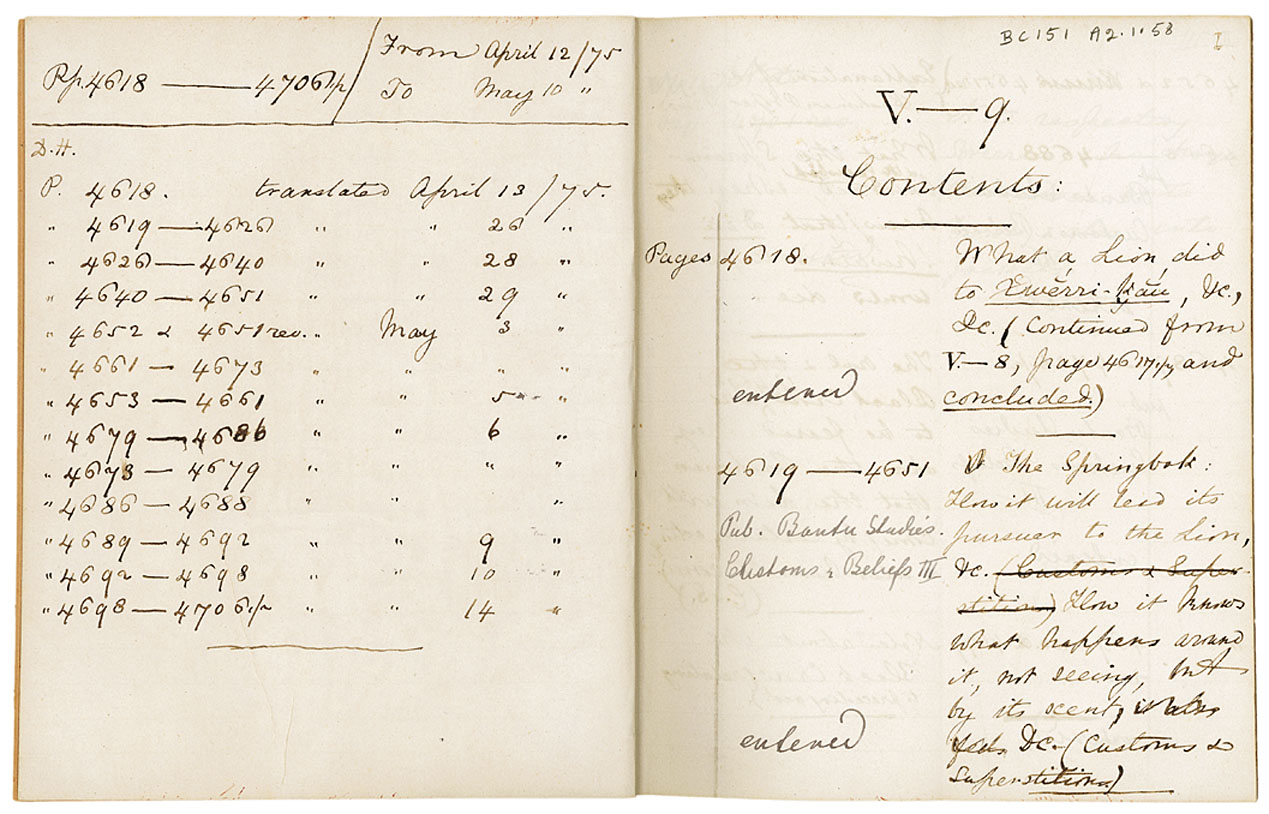 Pp. 4618 — 4706½
From April 12/75
To May 10 "
D.H.
P. 4618. translated April 13/75.
" 4619 — 4626 " " 26 "
" 4626 — 4640 " " 28 "
" 4640 — 4651 " " 29 "
" 4652 & 4651 rev. " May 3 "
" 4661 — 4673 " " " "
" 4653 — 4661 " " 5 "
" 4679 — 4686 " " 6 "
" 4673 — 4679 " " " "
" 4686 — 4688 " " "
" 4689 — 4692 " " 9 "
" 4692 — 4698 " " 10 "
" 4698 — 4706½ " " 14 "
BC151 A2.1.58
I
V.—9.
Contents:
Pages 4618. What a Lion did
to &c.,
&c. (Continued from
V—8, page 4617½, and
entered concluded.)
4619 — 4651 The Springbok:
How it will lead its
Pub. Bantu Studies. pursuer to the Lion,
Customs & Beliefs III &c. (Customs & Super-
stitions) How it knows
what happens around
it, not seeing, but
by its scent, it also
feels &c. (Customs &
entered Superstitions)